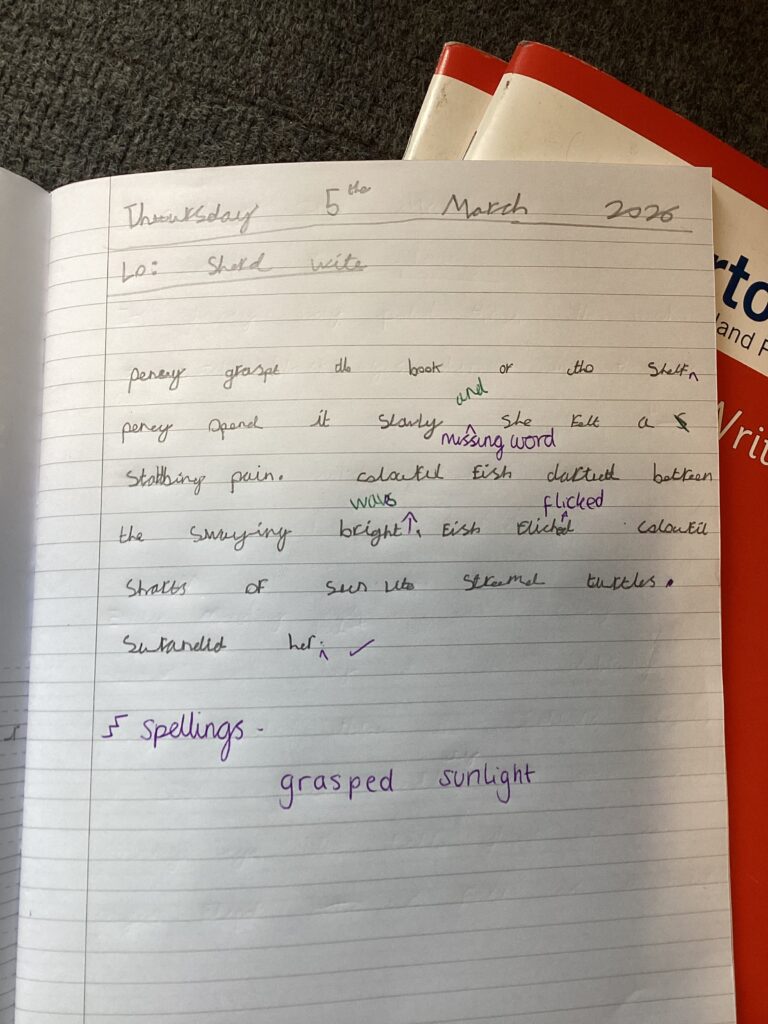 Thursday 5the March 2026
Lo: Sherd wite
percy graspt the book or the Shelf^
and
percy Opend it Slowly ^ She Felt a
missing word
Stabbing pain. colourful Fish darted between
wavs flicked
the Swaying bright ↑. Fish Flicked colourful
Shafts OF Sun streamed turtles.
Suranded her. ^ ✓
Spellings -
grasped sunlight
rto
land F
Writ